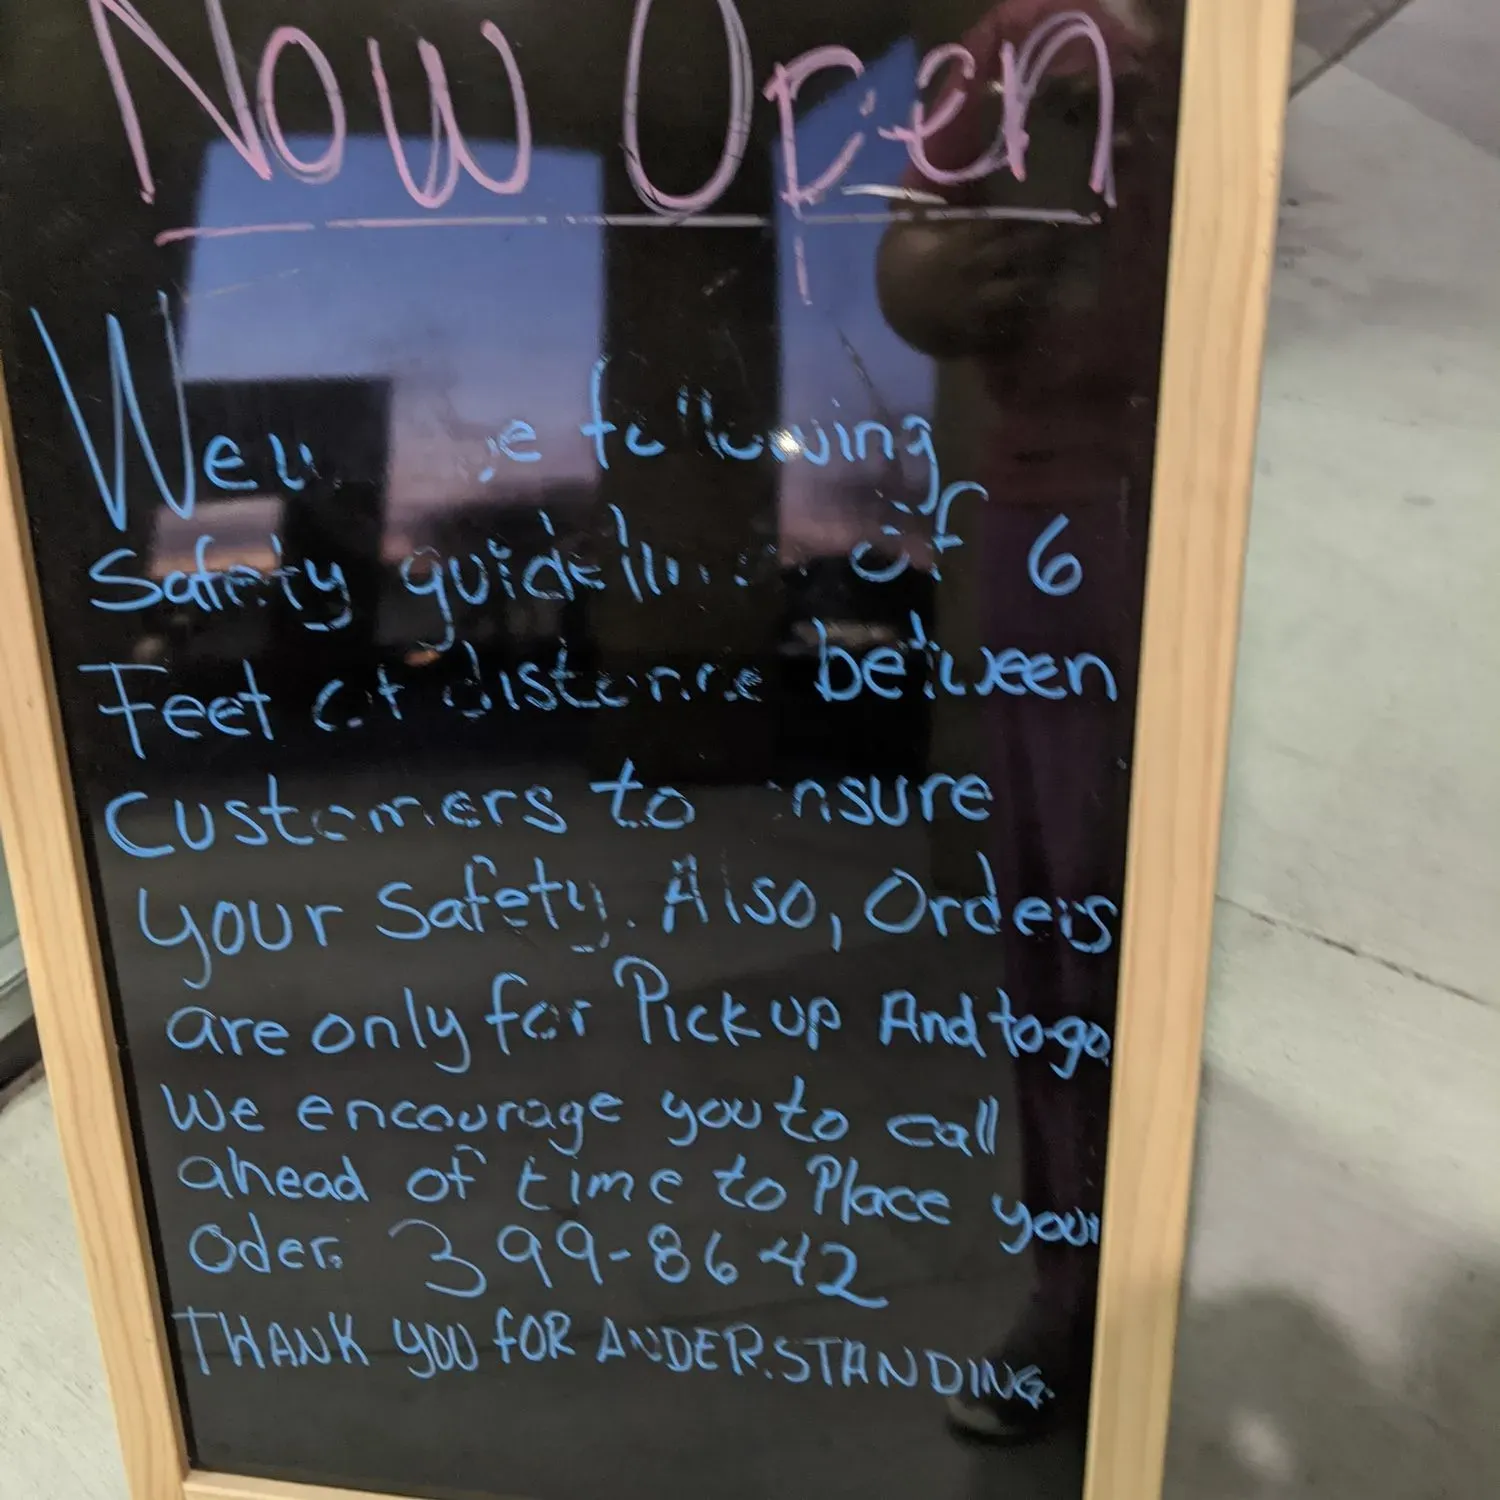 Now Open
following
Safety guidelines of 6
Feet of distance between
customers to ensure
your Safety. Also, Orders
are only for Pick up And to-go.
We encourage you to call
ahead of time to Place your
oder. 399-8642
THANK YOU FOR ANDERSTANDING.